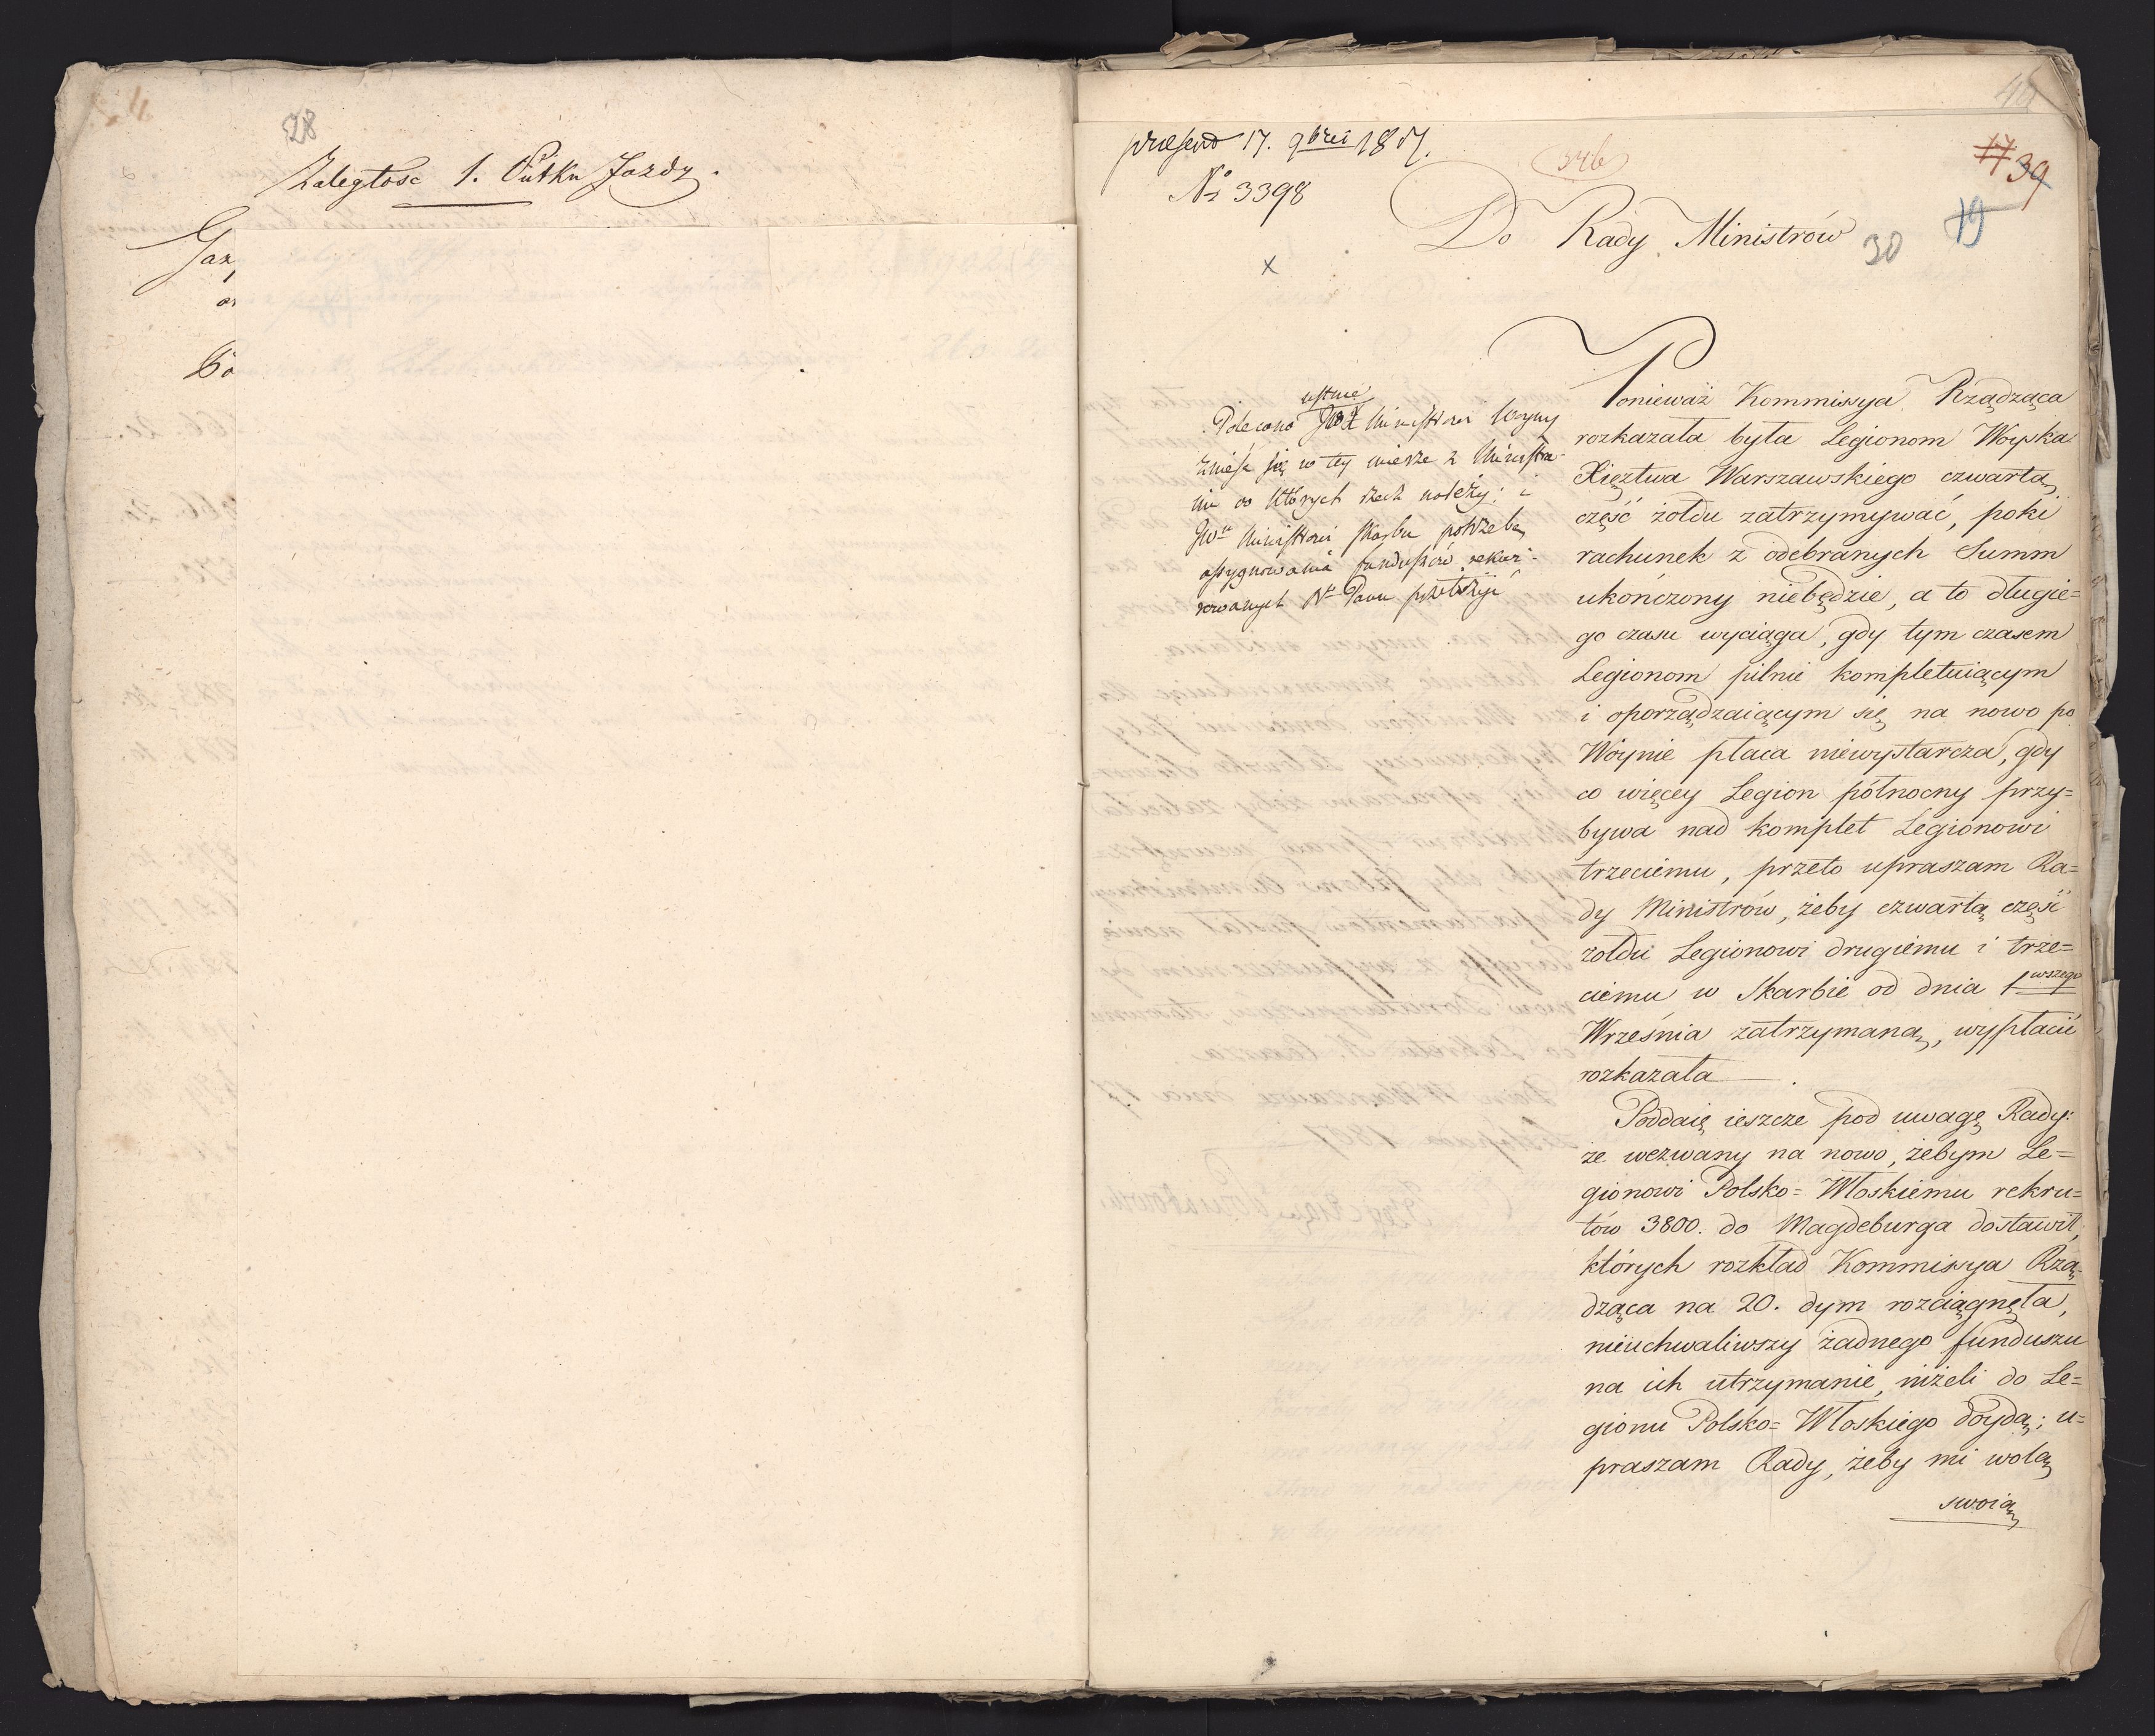 28
Zaległosc 1. Pułku Jazdy.
Gaż
Bo
præsent 17. 9brei 1807.
№ 3398
346
17 39
19
30
Do Rady Ministrów
x
ustnie
Polecono JW Ministrowi Woyny
znieść się w tey mierze z Ministra-
mi do których rzecz należy; i
JWu Ministrowi Skarbu potrzebę
assygnowania funduszów rekwi-
rowanych Nu Panu przełożyć
Ponieważ Kommissya Rządząca
rozkazała była Legionom Woyska
Xięztwa Warszawskiego czwartą
część żołdu zatrzymywać, poki
rachunek z odebranych Summ
ukończony niebędzie, a to długie=
go czasu wyciąga, gdy tym czasem
Legionom pilnie kompletuiącym
i oporządzaiącym się na nowo po
Woynie płaca niewystarcza, gdy
co więcey Legion północny przy=
bywa nad komplet Legionowi
trzeciemu, przeto upraszam Ra=
dy Ministrów, żeby czwartą część
żołdu Legionowi drugiemu i trze=
ciemu w Skarbie od dnia 1wszego
Września zatrzymaną, wypłacić
rozkazała.
Poddaię ieszcze pod uwagę Rady:
że wezwany na nowo, żebym Le=
gionowi Polsko=Włoskiemu rekru=
tów 3800. do Magdeburga dostawił,
których rozkład Kommissya Rzą=
dząca na 20. dym rozciągnęła,
nieuchwaliwszy żadnego funduszu
na ich utrzymanie, niżeli do Le=
gionu Polsko=Włoskiego doydą; u=
praszam Rady, żeby mi wolą
swoią